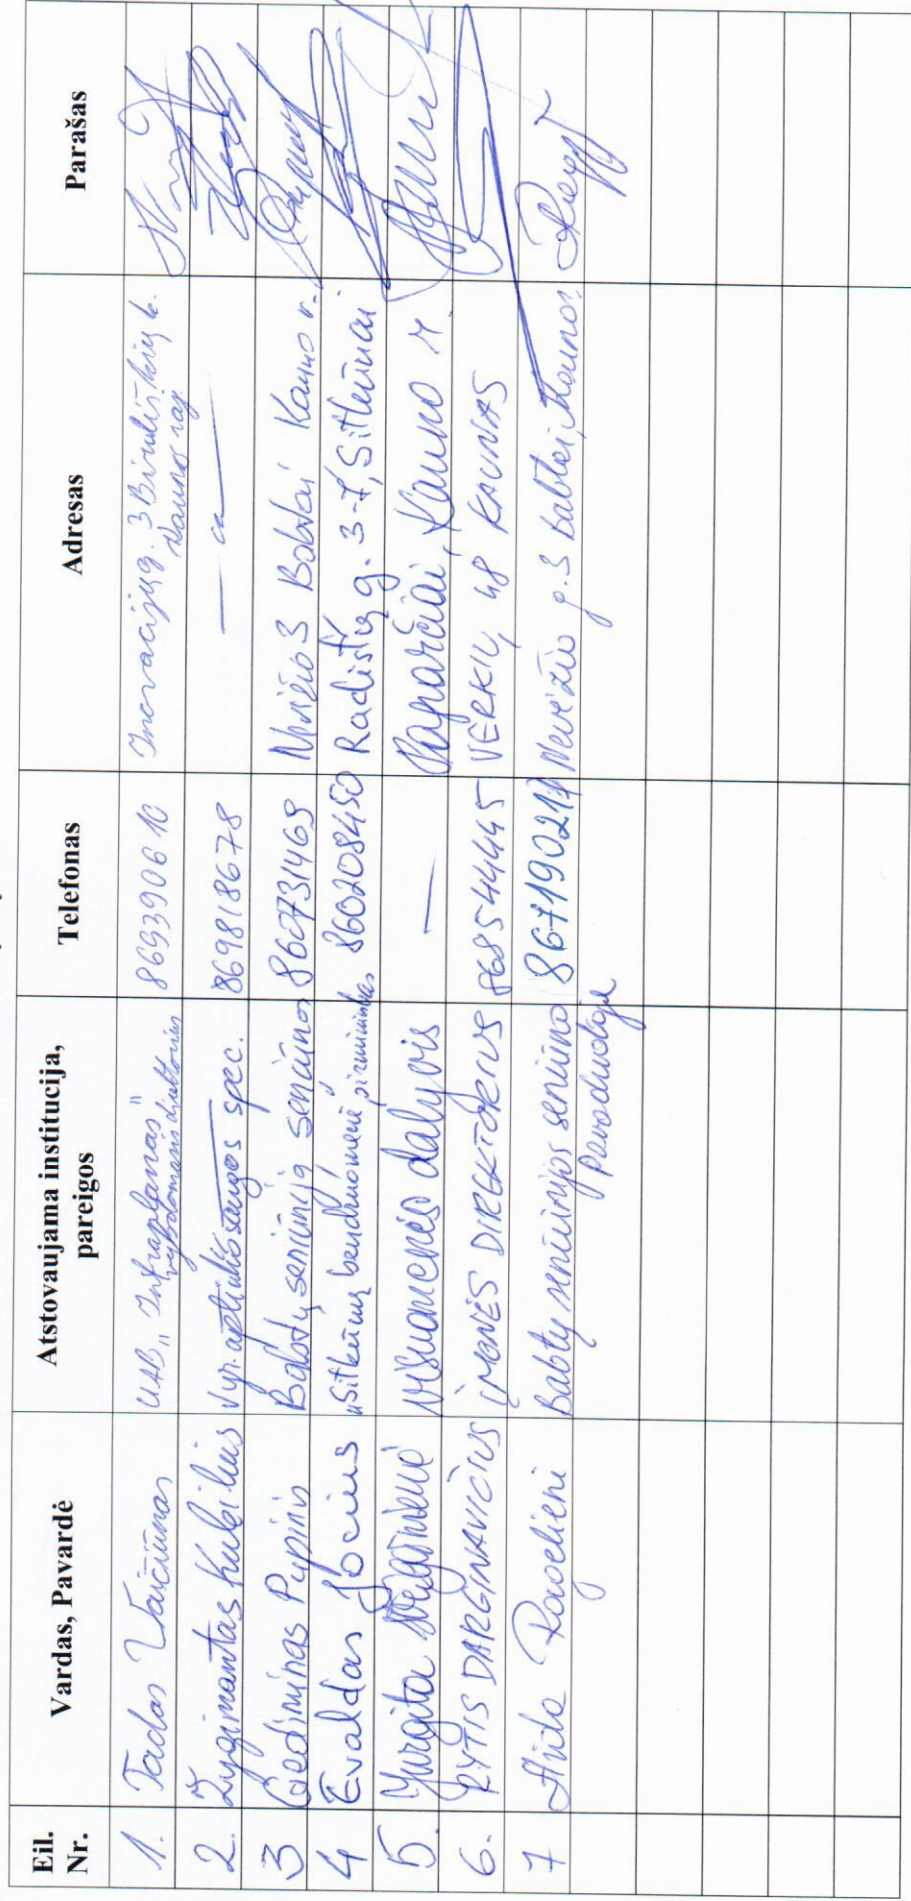 Eil. Nr. Vardas, Pavardė Atstovaujama institucija, pareigos Telefonas Adresas Parašas
1. Tadas Vaičiūnas UAB „Infraplanas" vykdomasis direktorius 869390610 Inovacijų g. 3 Biruliškių k. Kauno raj
2. Žygimantas Kubilius Vyr. aplinkosaugos spec. 869818678 — " —
3 Gediminas Pupinis Babtų seniūnijų seniūnas 860731469 Nevėžio 3 Babtai Kauno r.
4 Evaldas Jocius "Sitkūnų bendruomenė" pirmininkas 860208450 Radistų g. 3-7, Sitkūnai
5. Jurgita visuomenės dalyvis — Paparčiai, Kauno r
6. RYTIS DARGINAVIČIUS ĮMONĖS DIREKTORIUS 868544445 VERKIŲ 48 KAUNAS
7 Aida Babtų seniūnijos seniūno pavaduotoja Nevėžio g. 3 Babtai, Kauno r.